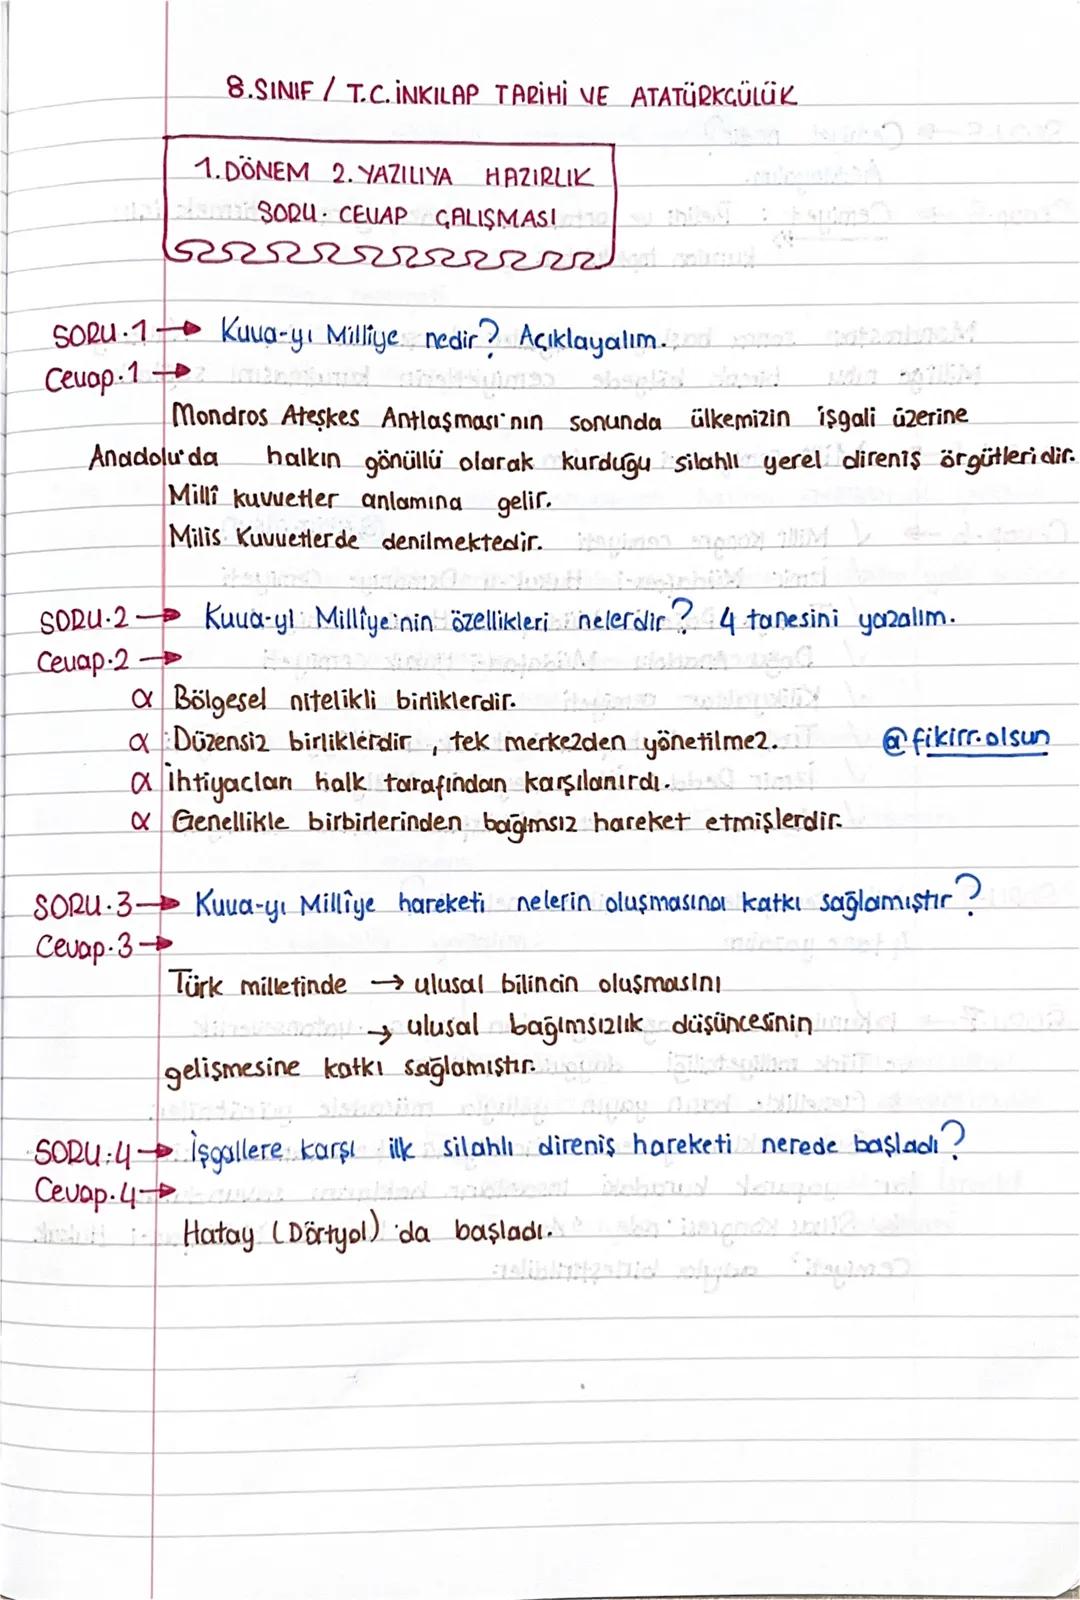 8.SINIF / T.C. İNKILAP TARİHİ VE ATATÜRKÇÜLÜK
1.DÖNEM 2.YAZILIYA HAZIRLIK
SORU-CEVAP ÇALIŞMASI
SORU-1 → Kuva-yı Millîye nedir? Açıklayalım.
Cevap-1 →
Mondros Ateşkes Antlaşması'nın sonunda ülkemizin işgali üzerine
Anadolu'da halkın gönüllü olarak kurduğu silahlı yerel direniş örgütleridir.
Millî kuvvetler anlamına gelir.
Milis Kuvvetlerde denilmektedir.
SORU-2 → Kuva-yı Millîye'nin özellikleri nelerdir? 4 tanesini yazalım.
Cevap-2 →
α Bölgesel nitelikli birliklerdir.
α Düzensiz birliklerdir, tek merkezden yönetilmez.
@fikirr.olsun
α İhtiyaçları halk tarafından karşılanırdı.
α Genellikle birbirlerinden bağımsız hareket etmişlerdir.
SORU-3 → Kuva-yı Millîye hareketi nelerin oluşmasına katkı sağlamıştır?
Cevap-3 →
Türk milletinde → ulusal bilincin oluşmasını
→ ulusal bağımsızlık düşüncesinin
gelişmesine katkı sağlamıştır.
SORU-4 → İşgallere karşı ilk silahlı direniş hareketi nerede başladı?
Cevap-4 →
Hatay (Dörtyol)'da başladı.